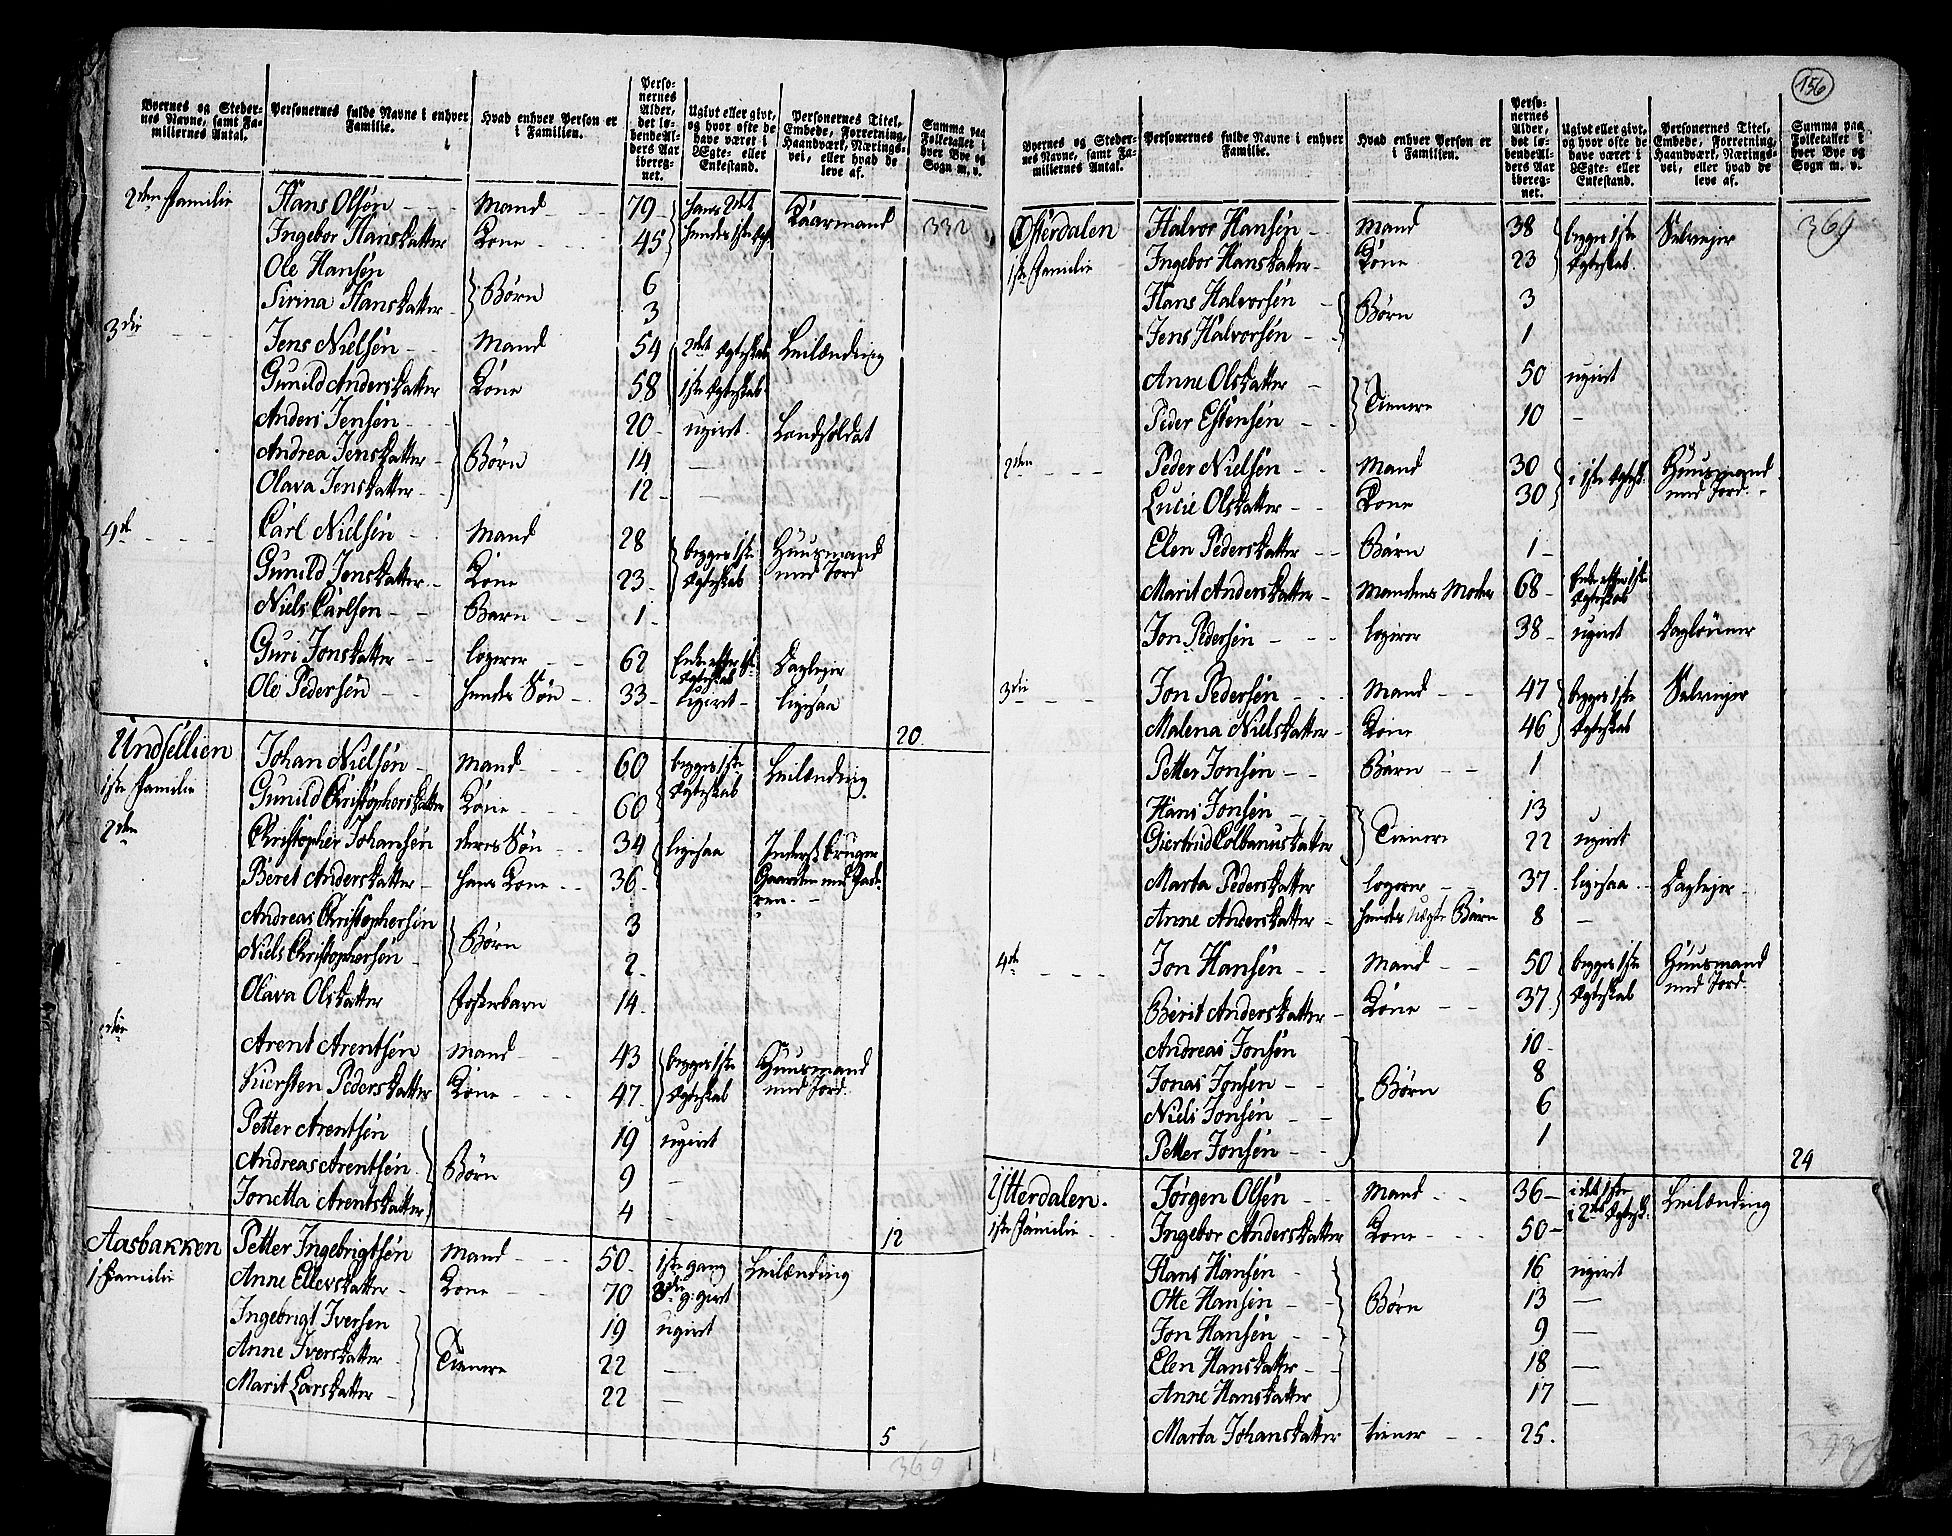 Byernes og Stedernes Navne, samt Familiernes Antal. | Personernes fulde Navne i enhver Familie. | Hvad enhver Person er i Familien. | Personernes Alder, det løbende Alders Aar iberegnet. | Ugivt eller givt, og hvor ofte de have været i Ægte- eller Enkestand. | Personernes Titel, Embede, Forretning, Haandværk, Næringsvei, eller hvad de leve af. | Summa paa Folketallet i hver Bye og Sogn m. v.
2den Familie | Hans Olsøn | Mand | 79 | hans 2det | Kaarmand | 332
Ingebor Hansdatter | Kone | 45 | hendes 1ste
Ole Hansøn | Børn | 6
Sirina Hansdatter | 3
3die | Jens Nielsøn | Mand | 54 | 2det Ægteskab | Leilænding
Gunild Andersdatter | Kone | 58 | 1ste Ægteskab
Anders Jensøn | Børn | 20 | ugivt | Landsoldat
Andrea Jensdatter | 14 | —
Olava Jensdatter | 12 | —
4de | Carl Nielsøn | Mand | 28 | begges 1ste Ægteskab | Huusmand med Jord
Gunild Jensdatter | Kone | 23
Niels Carlsen | Barn | 1
Guri Jonsdatter | logerer | 62 | Enke efter 1ste Ægteskab | Daglejer
Ole Pedersøn | hendes Søn | 33 | ugivt | ligesaa
20
Undsetlien
1ste Familie | Johan Nielsøn | Mand | 60 | begges 1ste Ægteskab | Leilænding
Gunild Christophersdatter | Kone | 60
2den | Christopher Johansøn | deres Søn | 34 | ligesaa | Inderst bruger Gaarden med Faderen
Beret Andersdatter | hans Kone | 36
Andreas Christophersøn | Børn | 3
Niels Christophersøn | 2
Olava Olsdatter | Fosterbarn | 14
3die | Arent Arentsøn | Mand | 43 | begges 1ste Ægteskab | Huusmand med Jord
Kiersten Pedersdatter | Kone | 47
Petter Arentsøn | Børn | 19 | ugivt
Andreas Arentsøn | 9 | —
Jonetta Arentsdatter | 4 | —
12
Aasbakken
1 Familie | Petter Ingebrigtsøn | Mand | 50 | 1ste gang | Leilænding
Anne Ellevsdatter | Kone | 70 | 3die g: givt
Ingebrigt Iversen | Tienere | 19 | ugivt
Anne Iversdatter | 22 | —
Marit Larsdatter | 22 | —
5
369
156
Byernes og Stedernes Navne, samt Familiernes Antal. | Personernes fulde Navne i enhver Familie. | Hvad enhver Person er i Familien. | Personernes Alder, det løbende Alders Aar iberegnet. | Ugivt eller givt, og hvor ofte de have været i Ægte- eller Enkestand. | Personernes Titel, Embede, Forretning, Haandværk, Næringsvei, eller hvad de leve af. | Summa paa Folketallet i hver Bye og Sogn m. v.
Østerdalen | Halvor Hansøn | Mand | 38 | begges 1ste Ægteskab | Selvejer | 369
1ste Familie | Ingebor Hansdatter | Kone | 23
Hans Halvorsøn | Børn | 3
Jens Halvorsøn | 1
Anne Olsdatter | Tienere | 50 | ugivt
Peder Estensøn | 10 | —
2den | Peder Nielsøn | Mand | 30 | i 1ste Ægtesk. | Huusmand med Jord
Lucie Olsdatter | Kone | 30
Elen Pedersdatter | Barn | 1
Marit Andersdatter | Mandens Moder | 68 | Enke efter 1ste Ægteskab
Jon Pedersøn | logerer | 38 | ugivt | Daglønner
3die | Jon Pedersøn | Mand | 47 | begges 1ste Ægteskab | Selvejer
Malena Nielsdatter | Kone | 46
Petter Jonsøn | Barn | 1
Hans Jonsøn | Tienere | 13
Giertrud Colbanusdatter | 22 | ugivt
Marta Pedersdatter | logerer | 37 | ligesaa | Daglejer
Anne Andersdatter | hendes uægte Barn | 8 | —
4de | Jon Hansøn | Mand | 50 | begges 1ste Ægteskab | Huusmand med Jord
Berit Andersdatter | Kone | 37
Andreas Jonsøn | Børn | 10
Jonas Jonsøn | 8
Niels Jonsøn | 6
Petter Jonsøn | 1
24
Ytterdalen | Jørgen Olsøn | Mand | 36 | i det 1ste | Leilænding
1ste Familie | Ingebor Andersdatter | Kone | 50 | i 2det Ægtesk.
Hans Hansøn | Børn | 16 | ugivt
Otte Hansøn | 13 | —
Jon Hansøn | 9 | —
Elen Hansdatter | 18 | —
Anne Hansdatter | 17 | —
Marta Johansdatter | tiener | 25
393